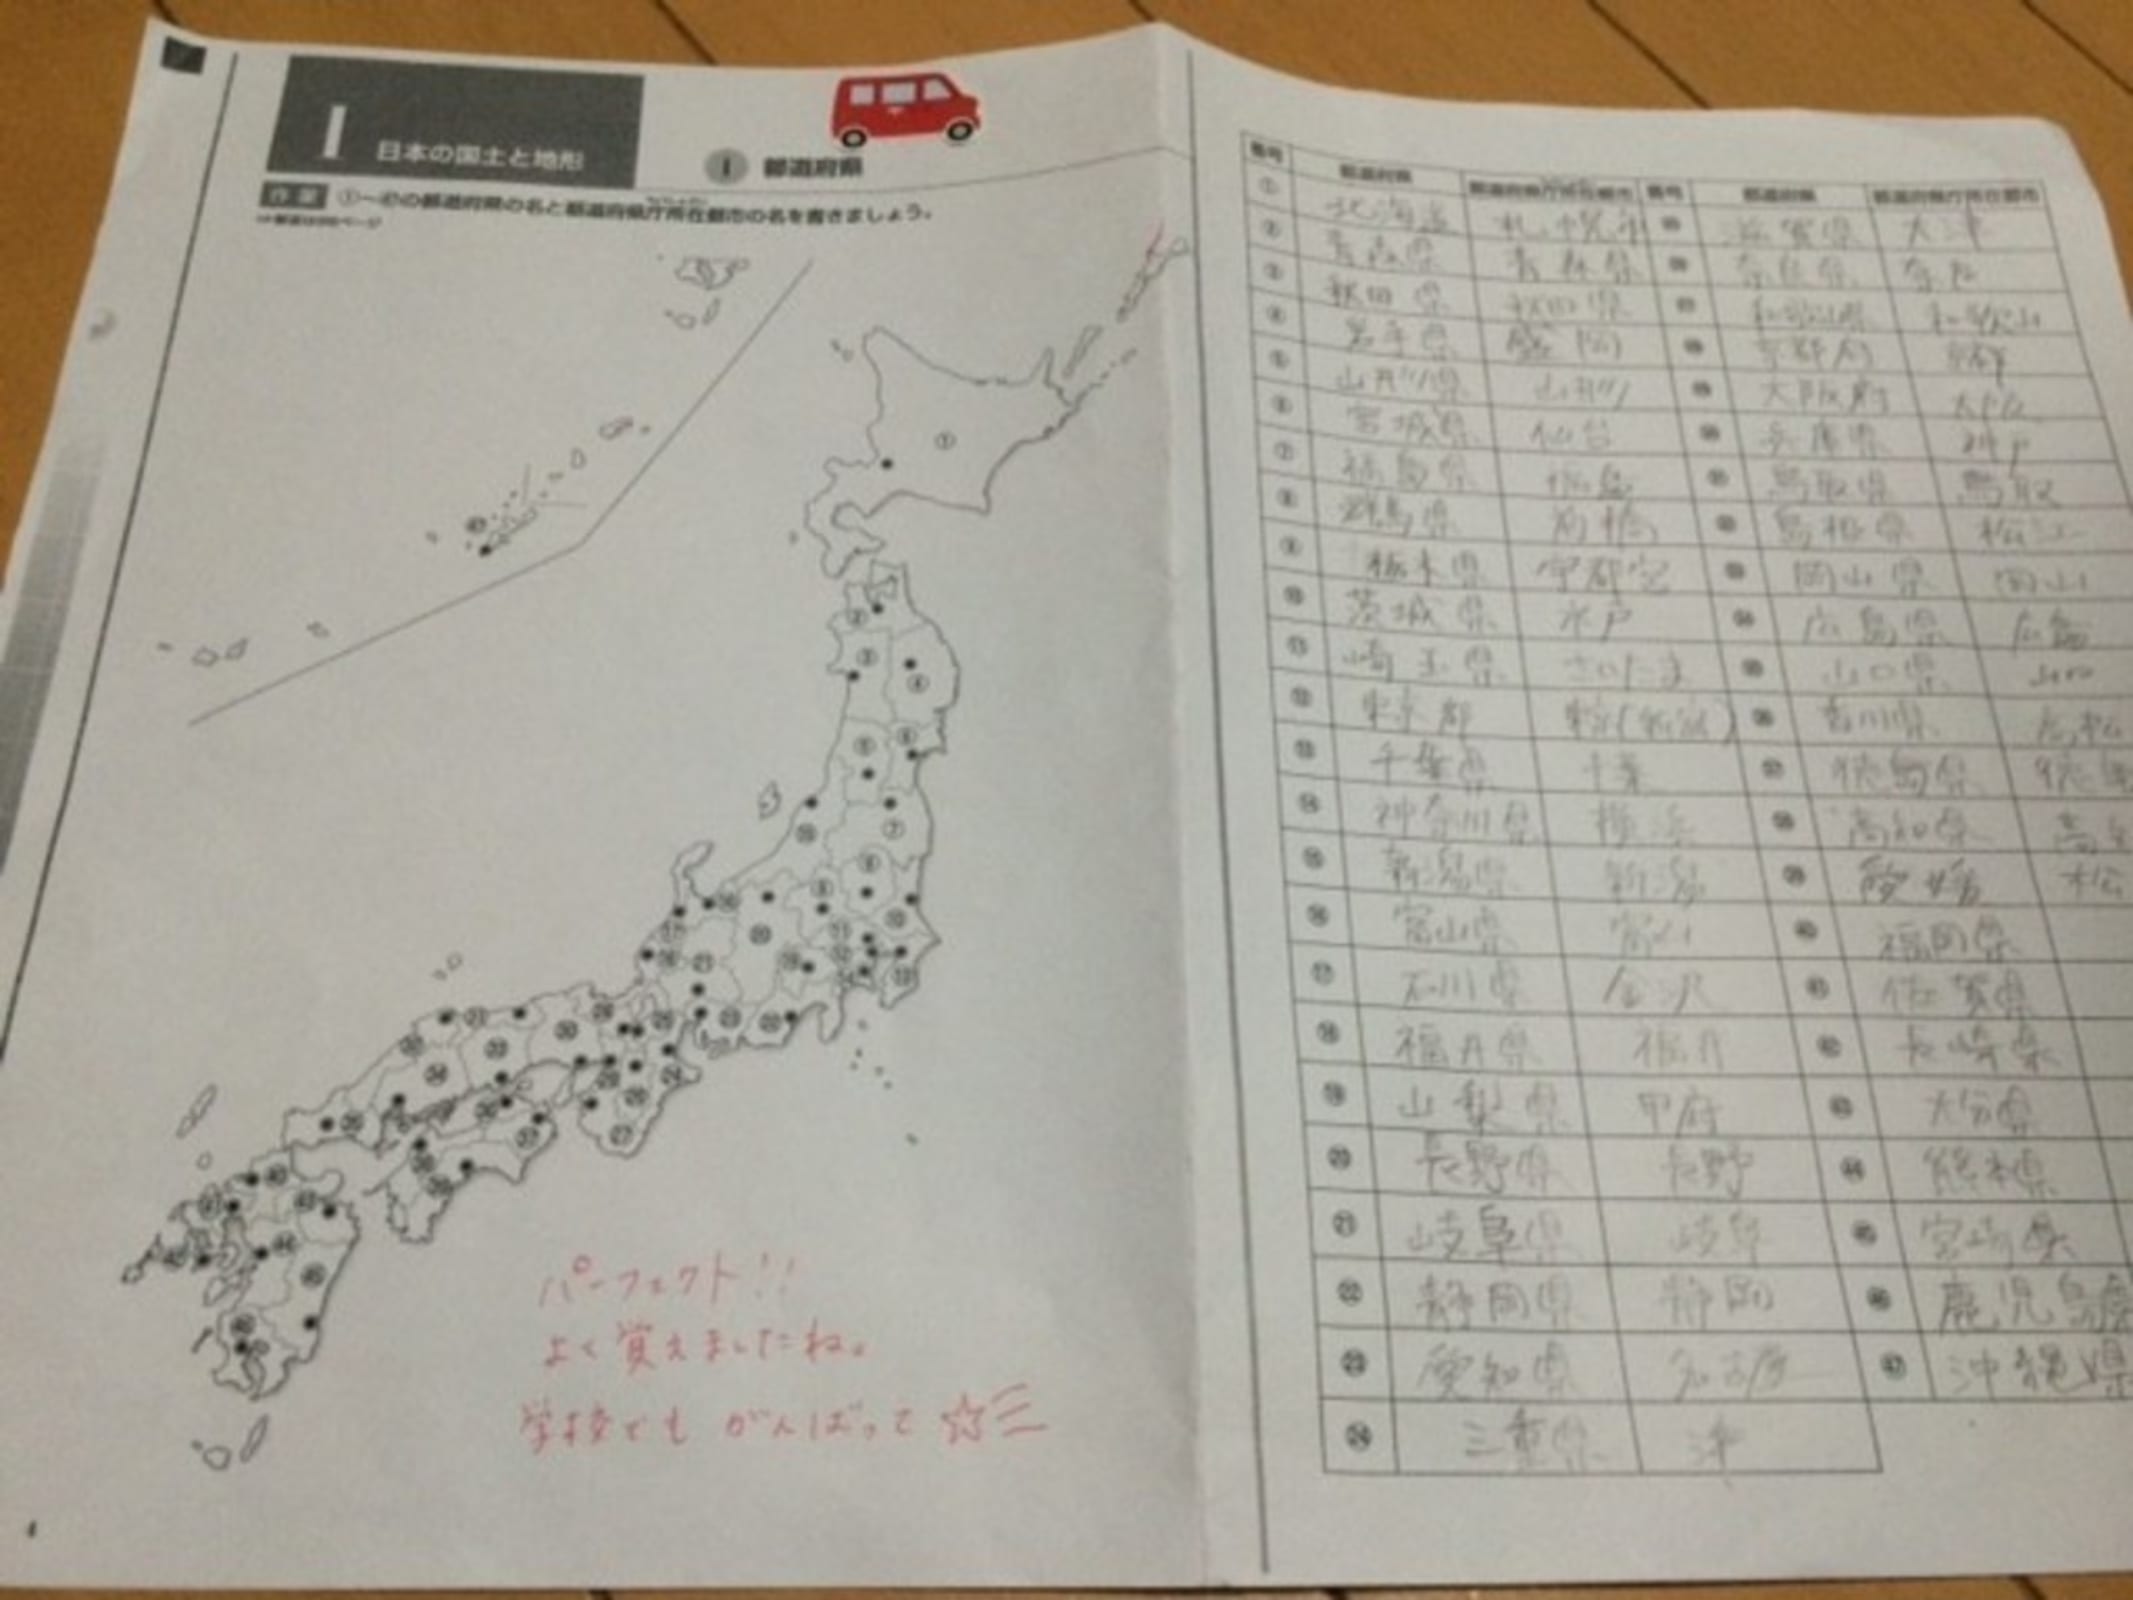 I 日本の国土と地形
i 都道府県
作業 ①〜㊼の都道府県の名と都道府県庁所在都市の名を書きましょう。
パーフェクト!!
よく覚えましたね。
学校でも がんばって☆
4
番号 都道府県 都道府県庁所在都市 番号 都道府県 都道府県庁所在都市
① 北海道 札幌市 ㉕ 滋賀県 大津
② 青森県 青森県 ㉖ 奈良県 奈良
③ 秋田県 秋田県 ㉗ 和歌山県 和歌山
④ 岩手県 盛岡 ㉘ 京都府 京都
⑤ 山形県 山形 ㉙ 大阪府
⑥ 宮城県 仙台 ㉚ 兵庫県 神戸
⑦ 福島県 福島 ㉛ 鳥取県 鳥取
⑧ 群馬県 前橋 ㉜ 島根県 松江
⑨ 栃木県 宇都宮 ㉝ 岡山県 岡山
⑩ 茨城県 水戸 ㉞ 広島県 広島
⑪ 埼玉県 さいたま ㉟ 山口県 山口
⑫ 東京都 東京(新宿) ㊱ 香川県 高松
⑬ 千葉県 千葉 ㊲ 徳島県 徳島
⑭ 神奈川県 横浜 ㊳ 高知県 高
⑮ 新潟県 新潟 ㊴ 愛媛 松
⑯ 富山県 富山 ㊵ 福岡県
⑰ 石川県 金沢 ㊶ 佐賀県
⑱ 福井県 福井 ㊷ 長崎県
⑲ 山梨県 甲府 ㊸ 大分県
⑳ 長野県 長野 ㊹ 熊本県
㉑ 岐阜県 岐阜 ㊺ 宮崎県
㉒ 静岡県 静岡 ㊻ 鹿児島
㉓ 愛知県 名古屋 ㊼ 沖縄県
㉔ 三重県 津